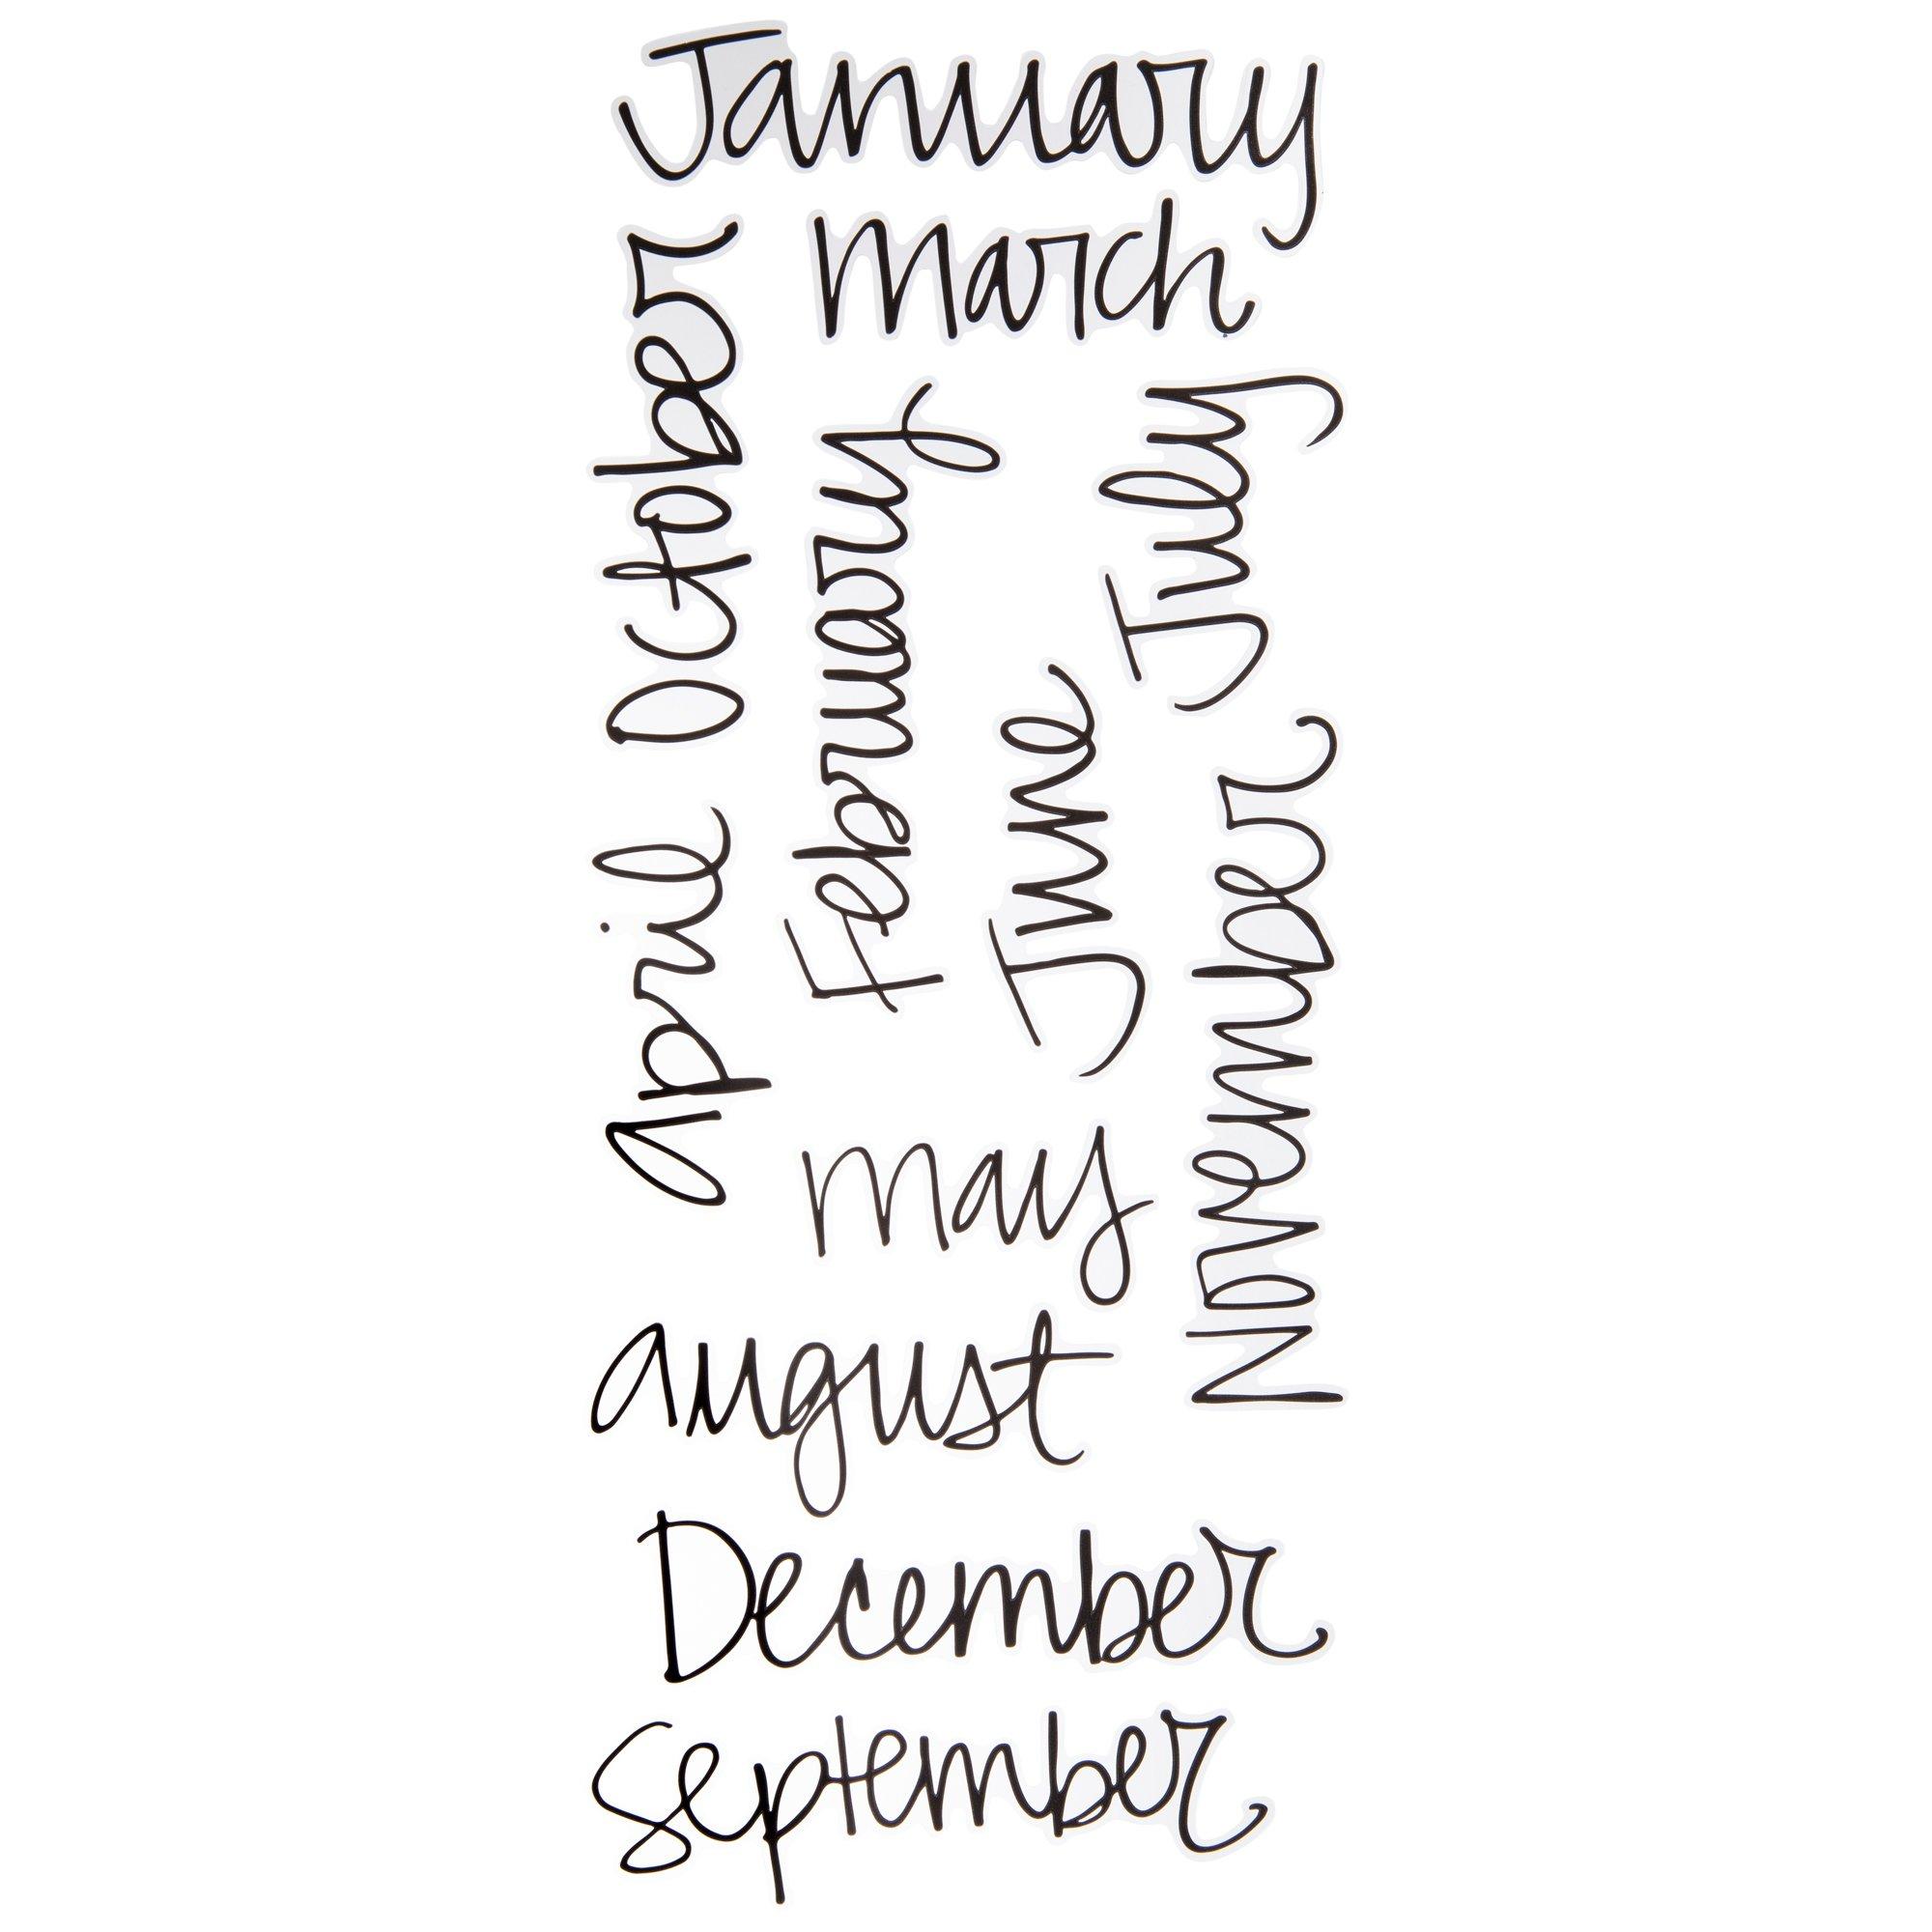 January
march
october
February
July
June
April
November
may
august
December
september